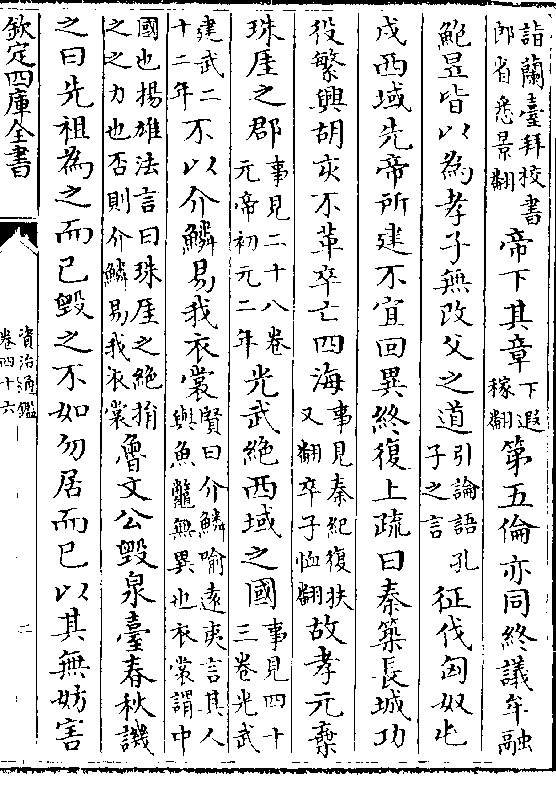 詣蘭臺拜校書郎省悉景翻帝下其章下遐稼翻第五倫亦同終議牟融
鮑昱皆以為孝子無改父之道引論語孔子之言征伐匈奴屯
戍西域先帝所建不宜回異終復上疏曰秦築長城功
役繁興胡亥不革卒亡四海事見秦紀復扶又翻卒子恤翻故孝元棄
珠厓之郡事見二十八卷元帝初元二年光武絶西域之國事見四十三卷光武
建武二十二年不以介鱗易我衣裳賢曰介鱗喻遠夷言其人與魚鼈無異也衣裳謂中
國也揚雄法言曰珠厓之絶捐之之力也否則介鱗易我衣裳魯文公毁泉臺春秋譏
之曰先祖為之而已毁之不如勿居而已以其無妨害
欽定四庫全書
資治通鑑
卷四十六
二